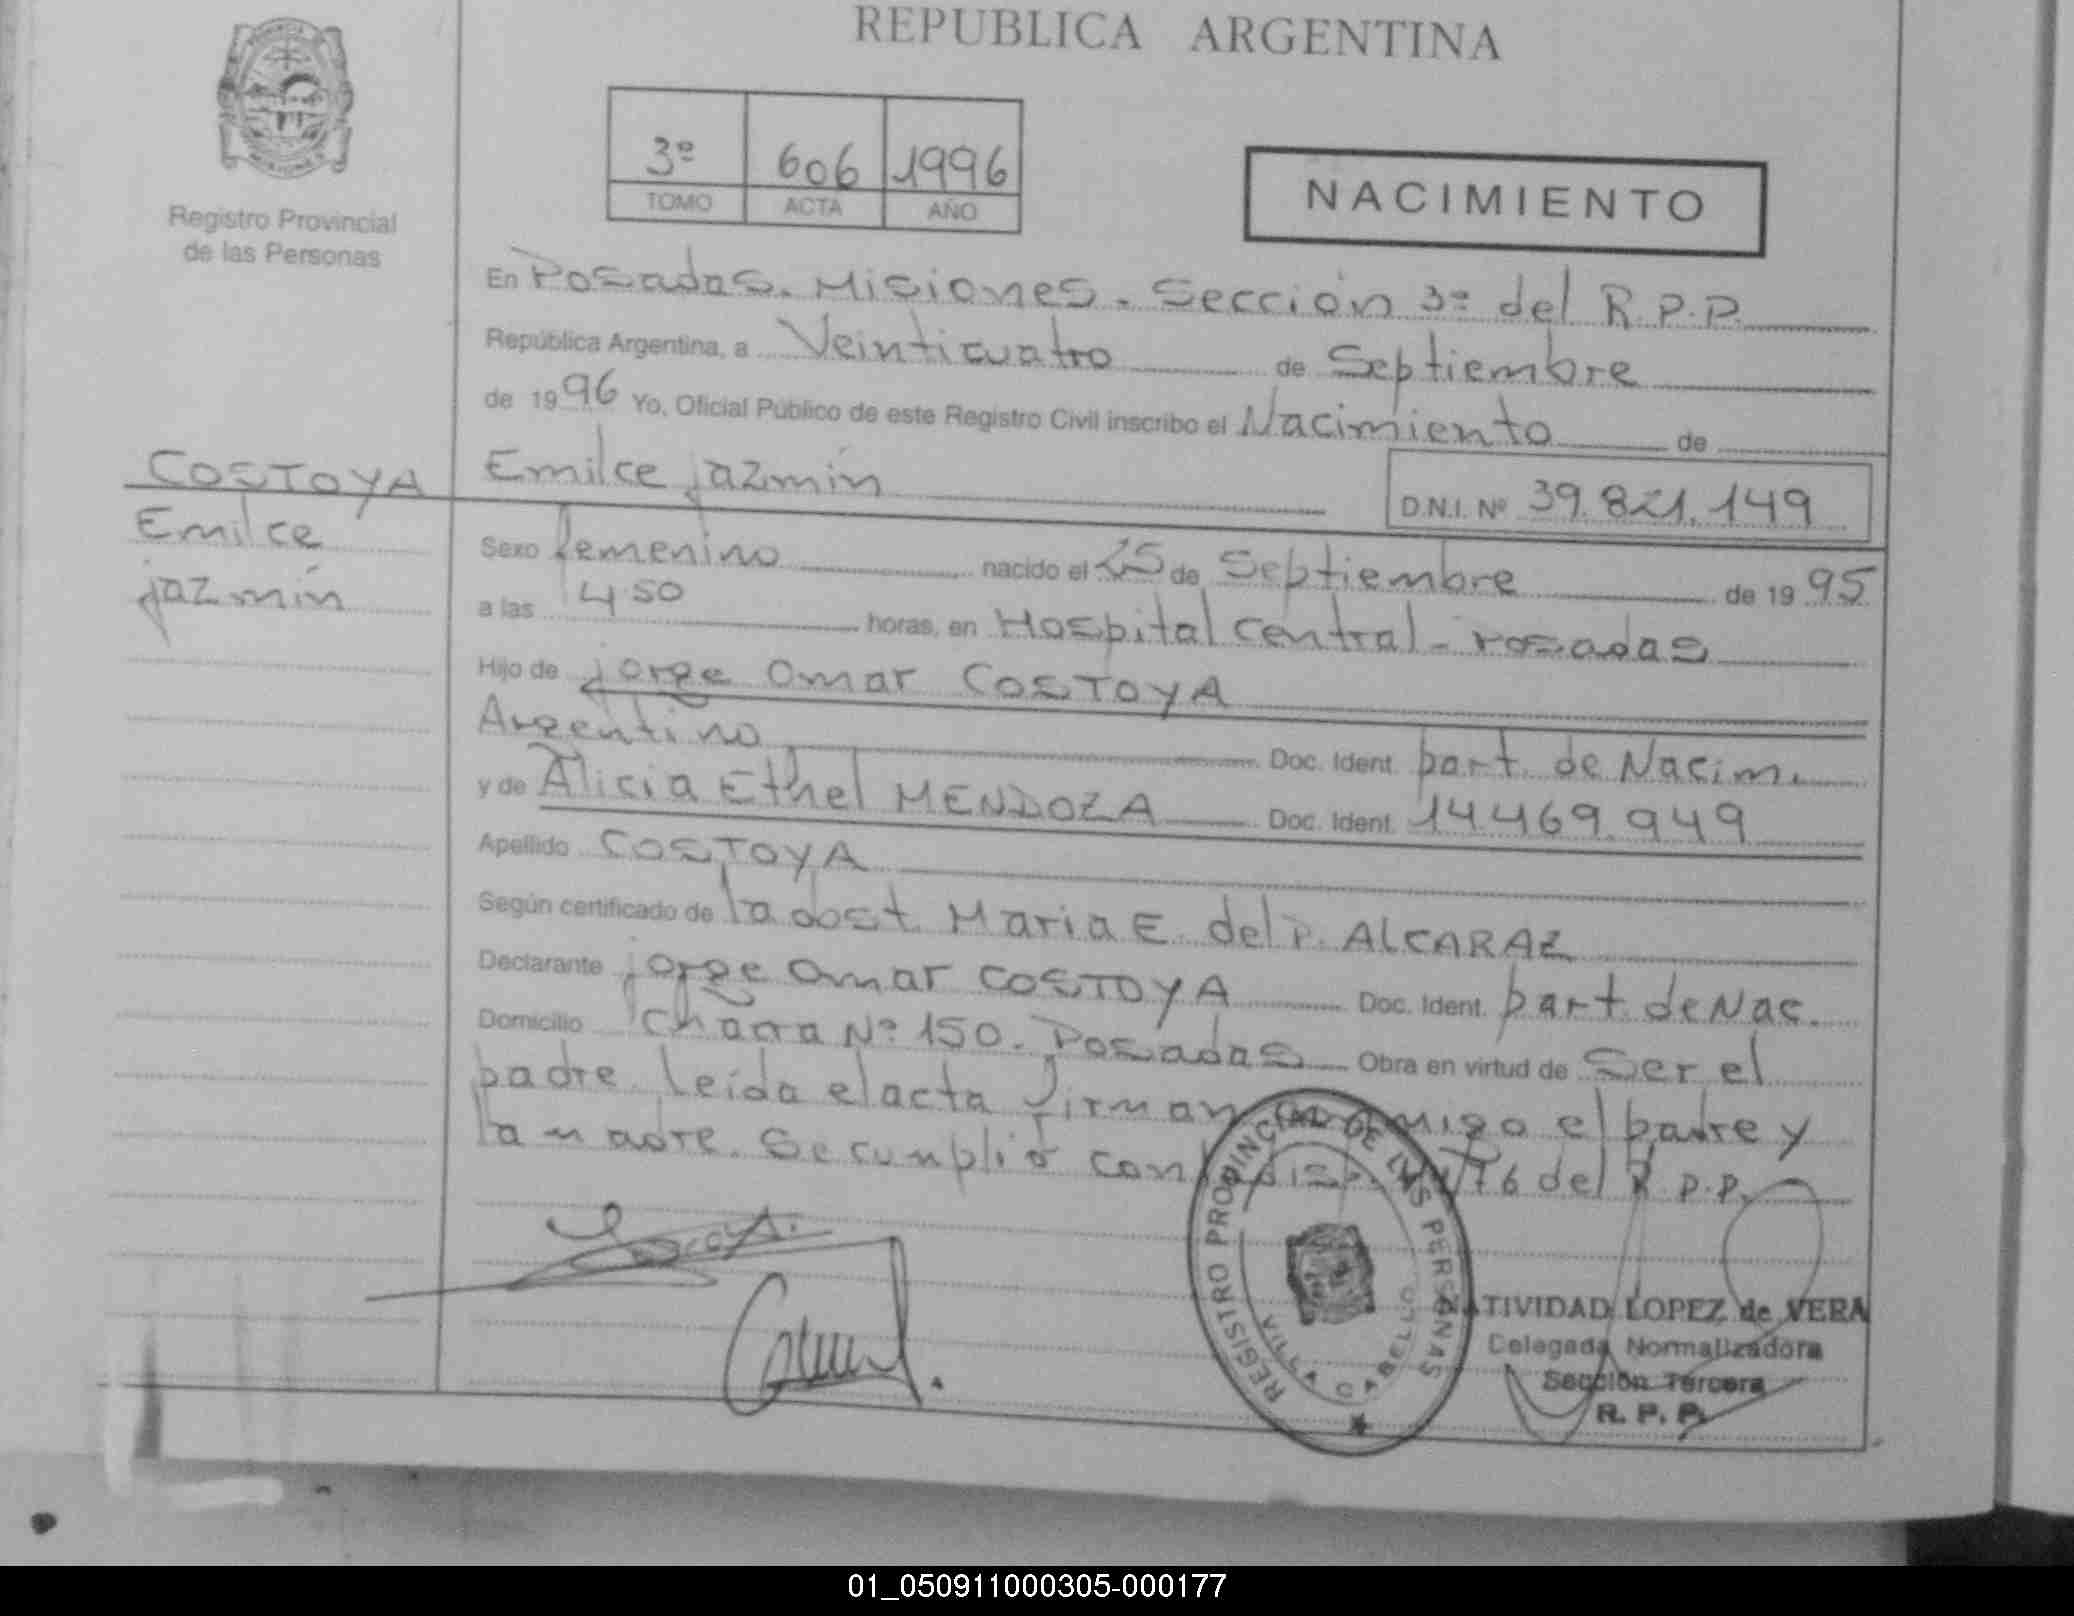 REPUBLICA ARGENTINA
3º 606 1996
TOMO ACTA AÑO
NACIMIENTO
Registro Provincial
de las Personas
En Posadas. Misiones. Sección 3º del R.P.P.
República Argentina, a Veinticuatro de Septiembre
de 1996 Yo, Oficial Público de este Registro Civil inscribo el Nacimiento de
COSTOYA
Emilce
jazmín
Emilce jazmín D.N.I. Nº 39.821.149
Sexo femenino nacido el 25 de Septiembre de 1995
a las 4.50 horas, en Hospital central - Posadas
Hijo de jorge Omar COSTOYA
Argentino Doc. Ident. part. de Nacim.
y de Alicia Ethel MENDOZA Doc. Ident. 14.469.949
Apellido COSTOYA
Según certificado de la obst. Maria E. del P. ALCARAZ
Declarante jorge Omar COSTOYA Doc. Ident. part. de Nac.
Domicilio Chacra Nº 150. Posadas Obra en virtud de Ser el
padre. Leída el acta firman conmigo el padre y
la madre. Se cumplió con 76 del R.P.P.
REGISTRO PROVINCIAL DE LAS PERSONAS
VILLA CABELLO
NATIVIDAD LOPEZ de VERA
Delegada Normalizadora
Sección Tercera
R. P. P.
01_050911000305-000177